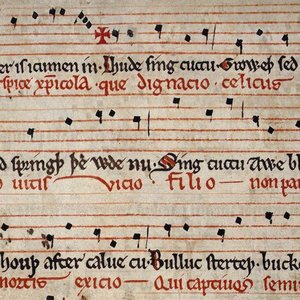 er is icumen in. Lhude sing cuccu. Groweþ sed
spice xp̄icola. que dignacio. celicus
d springþ þe wde nu. Sing cuccu Awe bl
o uitis vicio. filio — non pa
houþ after calue cu. Bulluc sterteþ. bucke
mortis exicio — Qui captiuos semi